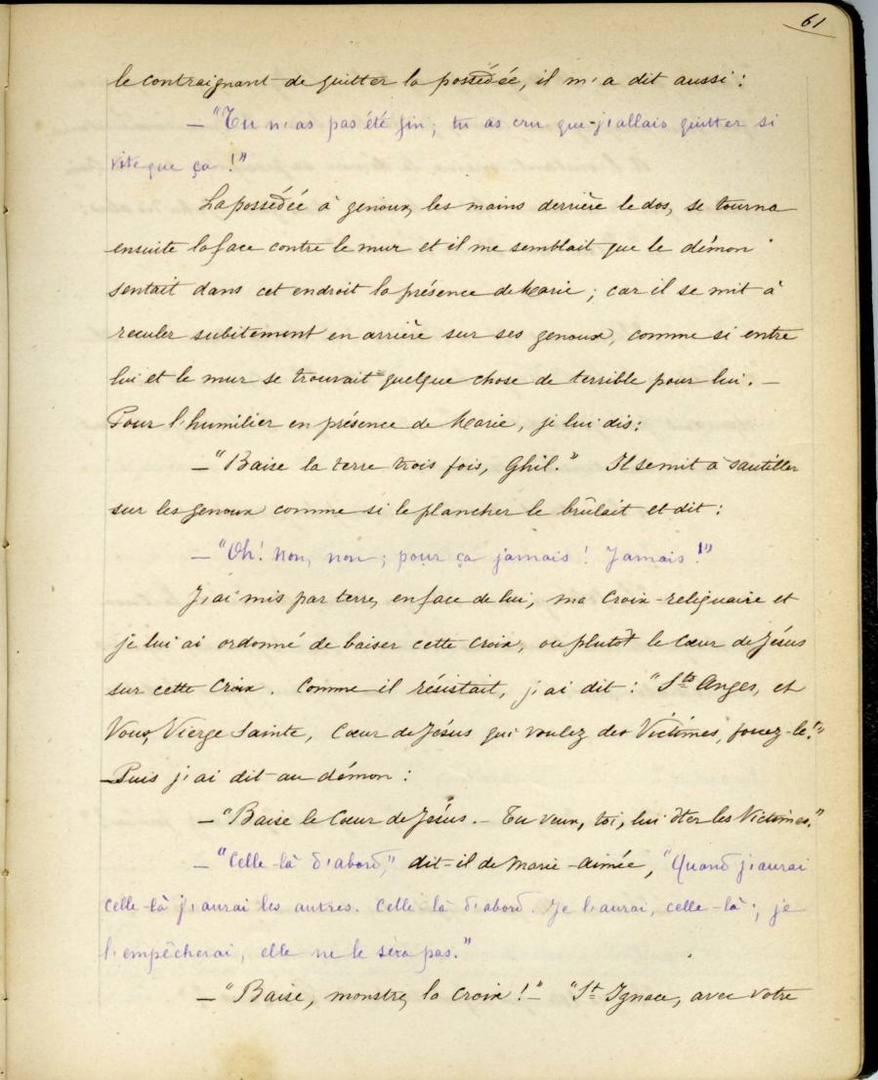 61
le contraignant de quitter la possédée, il m'a dit aussi :
— "Tu n'as pas été fin; tu as cru que j'allais quitter si
vite que ça !"
La possédée à genoux, les mains derrière le dos, se tourna
ensuite la face contre le mur et il me semblait que le démon
sentait dans cet endroit la présence de Marie ; car il se mit à
reculer subitement en arrière sur ses genoux, comme si entre
lui et le mur se trouvait quelque chose de terrible pour lui. —
Pour l'humilier en présence de Marie, je lui dis:
— "Baise la terre trois fois, Ghil." Il se mit à sautiller
sur les genoux comme si le plancher le brûlait et dit :
— "Oh! non, non ; pour ça jamais ! Jamais !"
J'ai mis par terre, en face de lui, ma Croix-reliquaire et
je lui ai ordonné de baiser cette Croix, ou plutôt le Cœur de Jésus
sur cette Croix. Comme il résistait, j'ai dit : "Sts Anges, et
Vous, Vierge Sainte, Cœur de Jésus qui voulez des Victimes, forcez-le!"
— Puis j'ai dit au démon :
— "Baise le Cœur de Jésus. — Tu veux, toi, lui ôter les Victimes."
— "Celle-là d'abord," dit-il de Marie-Aimée, "Quand j'aurai
celle-là j'aurai les autres. Celle-là d'abord. Je l'aurai, celle-là ; je
l'empêcherai, elle ne le sera pas."
— "Baise, monstre, la Croix !" — "St Ignace, avec votre